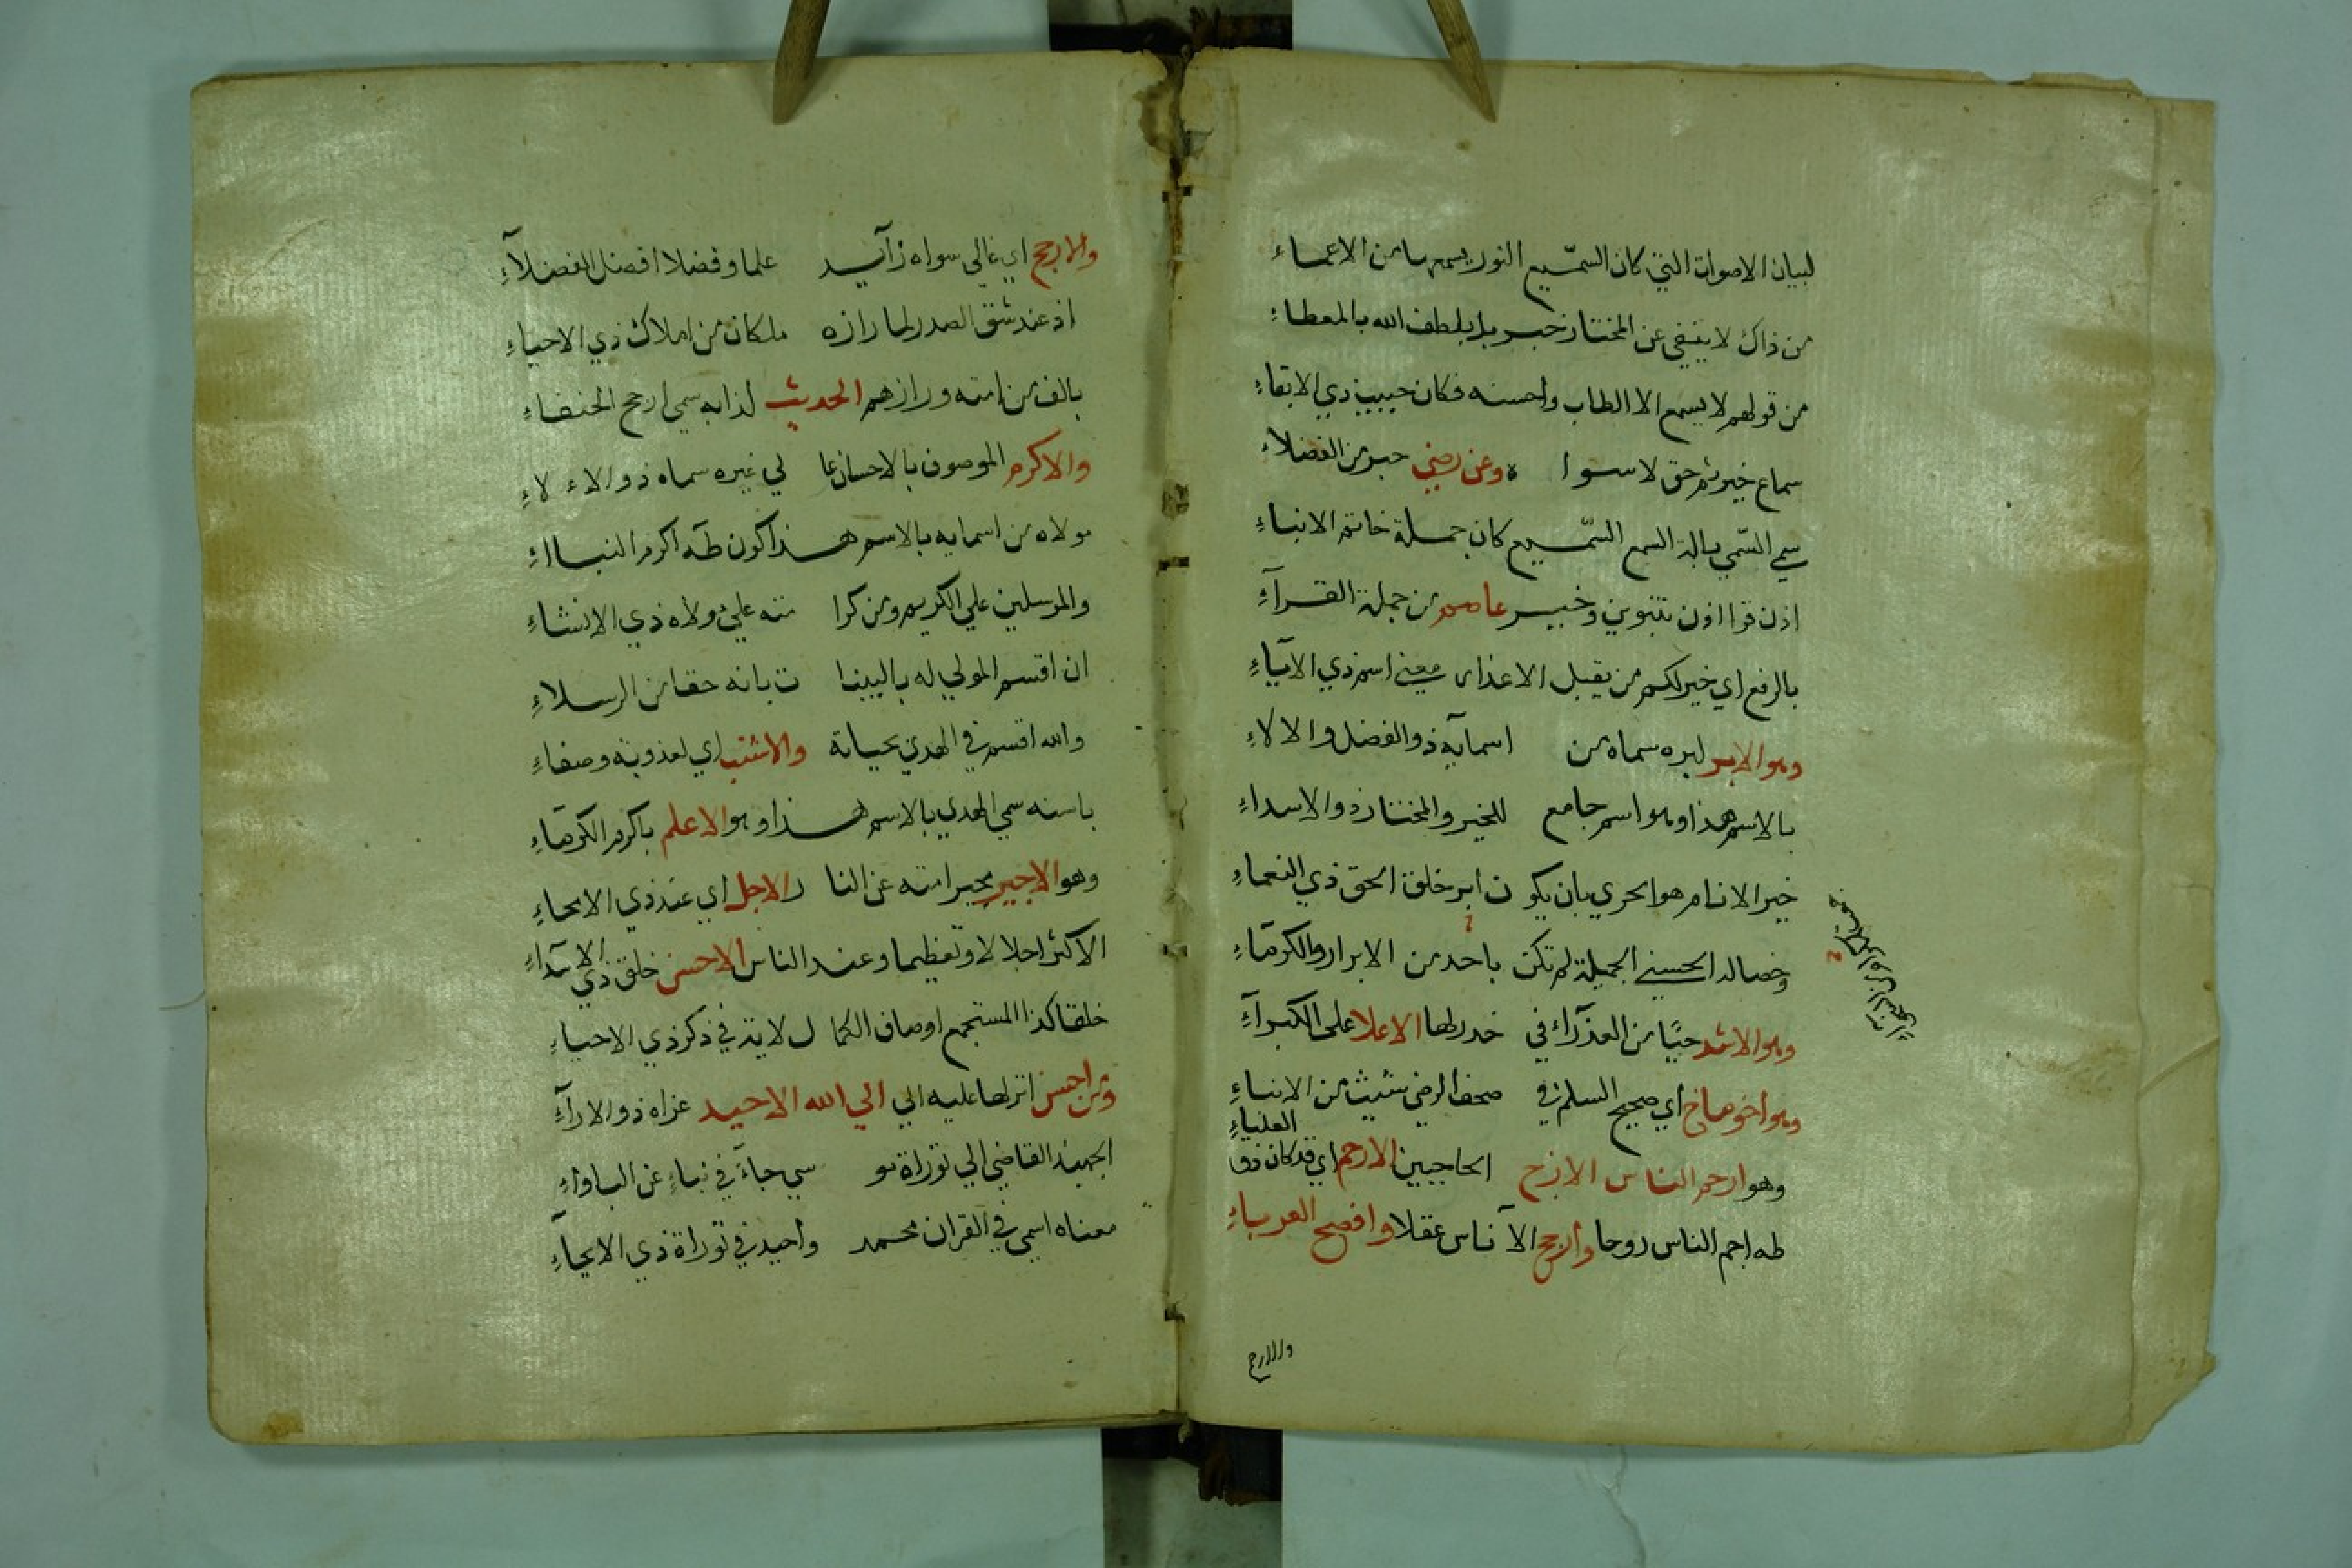 لبيان الاصوات التي كان السميع النور يسمعها من الاعماء
من ذاك لا ينتفي عن المختار خبر بل بلطف الله بالمعطاء
من قولهم لا يسمع الا الطاب واحسنه فكان حبيب ذي الابقاء
سماع خير ثم حق لا سوا ه وعن رضي حبر من الفضلاء
سمي السمي بالة السمع السميع كان جملة خاتم الانباء
اذن قوا اذن بتنوين وخير عاصم من جملة القرآء
بالرفع اي خير لكم من يقبل الاعذار معنى اسم ذي الآيآء
وهو الابر لبره سماه من اسمآيه ذو الفضل والالاء
بالاسم هذا وهو اسم جامع للخير والمختار ذو الاسداء
خير الانام هو الحري بان يكو ن ابر خلق الحق ذي النعماء
وخصاله الحسنى الجميلة لم تكن باحد من الابرار والكرمآء
وهو الاشد حيًا من العذرآء في خدرلها الاعلا على الكبرآء
وهو اخوصاخ اي صحيح السلم في صحف الرضي شيث من الانباء
وهو ارحم الناس الازج الحاجبين الارحم اي قد كان فوق العلياء
طه اجم الناس روحا وارجح الآناس عقلا وافصح العرباء
والارجح
والارجح اي عالي سواه زآيد علما وفضلا افضل الفضلآء
اذ عند شق الصدر لما رازه ملكان من املاك ذي الاحياء
بالف من امته ورازهم الحديث لذا به سمي ارجح الحنفاء
والاكرم الموصوف بالاحسان عا لي غيره سماه ذو الاء لاء
مولاه من اسمايه بالاسم هذا كون طه اكرم النباء
والمرسلين علي الكريم ومن كرا مته علي مولاه ذي الانشاء
ان اقسم المولي له بالبينا ت بانه حقا من الرسلاء
والله اقسم في الهدي بحياته والاشنب اي لعذوبة وصفاء
باسنه سمي الهدي بالاسم هذا وهو الاعلم باكرم الكرمآء
وهو الاجير مجير امته عن النا ر الاجل اي عند ذي الايحاء
الاكثر اجلالا وتعظيما وعند الناس الاحسن خلق ذي الاسدآء
خلقا كذا المستجمع اوصاف الكما ل لاية في ذكر ذي الاحياء
ومن احسن انزلها عليه الي الي الله الاحيد عزاه ذو الارآء
الجهبذ القاضي الي توراة مو سي جاء في نباء عن الباواء
معناه اسمي في القران محمد واحيد في توراة ذي الايحآء